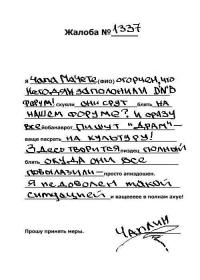 Жалоба № 1337
Я Чапа Мачете (ФИО) огорчен, что
негодяи заполонили DND
форум! скукля они срут блять на
нашем форуме? и сразу
все ёбанаврот пишут "драм"—
ваще насрать на культуру!
Здесь творится пиздец полный
блять, откуда они все
повылазили— просто апиздошен.
Я недоволен такой
ситуацией и ващееее в полнам ахуе!
Прошу принять меры.
Чаплин